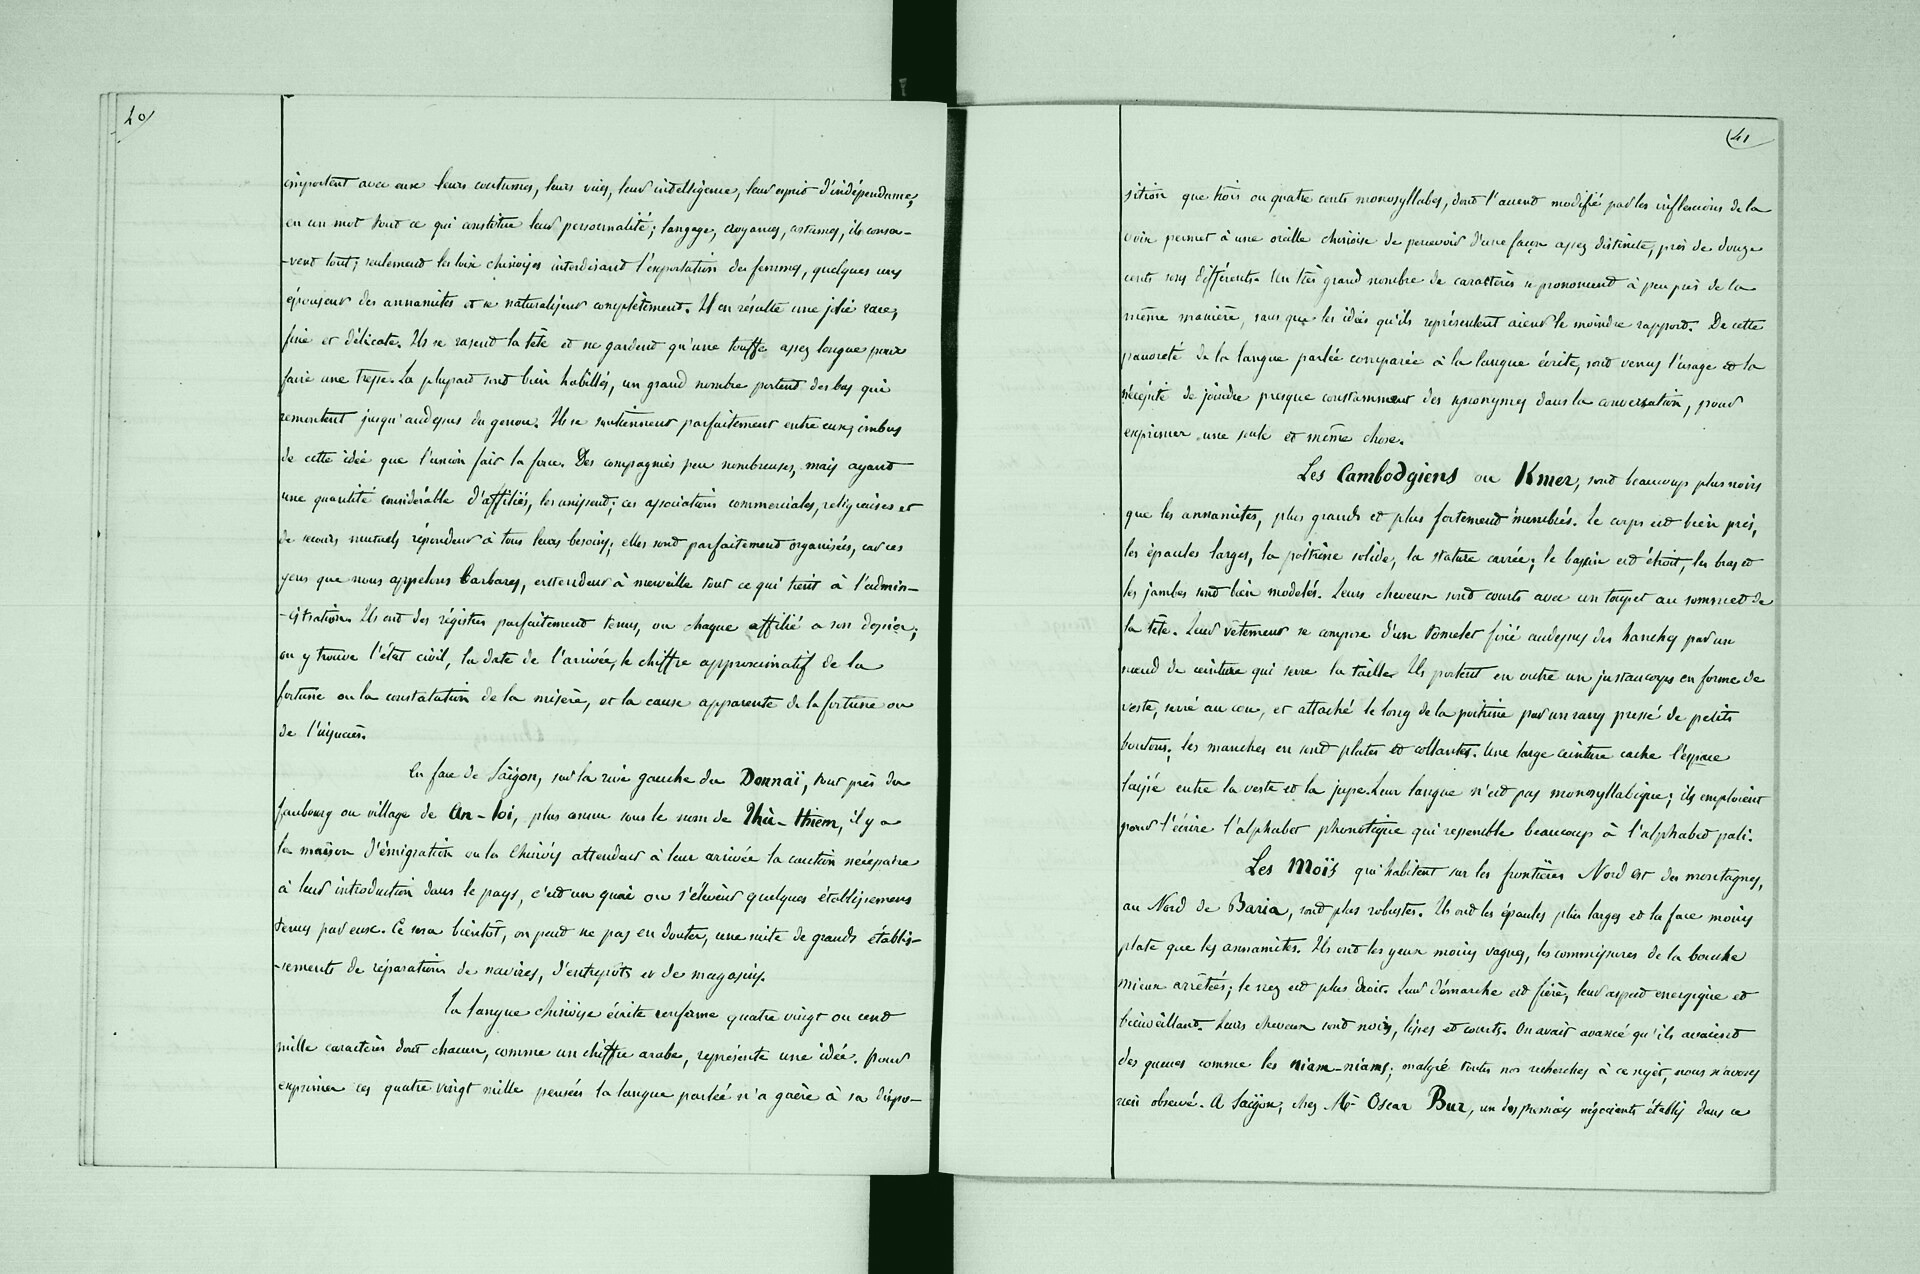 40
importent avec eux leurs coutumes, leurs vices, leur intelligence, leur esprit d'indépendance,
en un mot tout ce qui constitue leur personnalité; langage, croyances, costumes, ils conser-
-vent tout; seulement les lois chinoises interdisant l'exportation des femmes, quelques uns
épousent des annamites et se naturalisent complètement. Il en résulte une jolie race,
fine et délicate. Ils se rasent la tête et ne gardent qu'une touffe assez longue pour
faire une tresse. La plupart sont bien habillés, un grand nombre portent des bas qui
remontent jusqu'au dessus du genou. Ils se soutiennent parfaitement entre eux, imbus
de cette idée que l'union fait la force. Des compagnies peu nombreuses, mais ayant
une quantité considérable d'affiliés, les unissent; ces associations commerciales, religieuses et
de secours mutuels répondent à tous leurs besoins; elles sont parfaitement organisées, car ces
gens que nous appelons barbares, entendent à merveille tout ce qui tient à l'admin-
-istration. Ils ont des régistres parfaitement tenus, ou chaque affilié a son dossier;
on y trouve l'état civil, la date de l'arrivée, le chiffre approximatif de la
fortune ou la constatation de la misère, et la cause apparente de la fortune ou
de l'insuccès.
En face de Saïgon, sur la rive gauche du Donnaï, tout près du
faubourg ou village de An-loi, plus connu sous le nom de Thù-thiem, il y a
la maison d'émigration ou les Chinois attendent à leur arrivée la caution nécessaire
à leur introduction dans le pays, c'est un quai ou s'élèvent quelques établissements
tenus par eux. Ce sera bientôt, on peut ne pas en douter, une suite de grands établis-
-sements de réparations de navires, d'entrepôts et de magasins.
La langue chinoise écrite renferme quatre vingt ou cent
mille caractères dont chacun, comme un chiffre arabe, représente une idée. Pour
exprimer ces quatre vingt mille pensées la langue parlée n'a guère à sa dispo-
41
sition que trois ou quatre cents monosyllabes, dont l'accent modifié par les inflexions de la
voix permet à une oreille chinoise de percevoir d'une façon assez distincte, près de douze
cents sons différents. Un très grand nombre de caractères se prononcent à peu près de la
même manière, sans que les idées qu'ils représentent aient le moindre rapport. De cette
pauvreté de la langue parlée comparée à la langue écrite, sont venus l'usage et la
nécessité de joindre presque constamment des synonymes dans la conversation, pour
exprimer une seule et même chose.
Les Cambodgiens ou Kmer, sont beaucoup plus noirs
que les annamites, plus grands et plus fortement membrés. Le corps est bien pris,
les épaules larges, la poitrine solide, la stature carrée; le bassin est étroit, les bras et
les jambes sont bien modelés. Leurs cheveux sont courts avec un toupet au sommet de
la tête. Leur vêtement se compose d'un tonnelet fixé au dessus des hanches par un
nœud de ceinture qui serre la taille. Ils portent en outre un justaucorps en forme de
veste, serré au cou, et attaché le long de la poitrine par un rang pressé de petits
boutons; les manches en sont plates et collantes. Une large ceinture cache l'espace
laissé entre la veste et la jupe. Leur langue n'est pas monosyllabique; ils emploient
pour l'écrire l'alphabet phonétique qui ressemble beaucoup à l'alphabet pali.
Les Moïs qui habitent sur les frontières Nord est des montagnes,
au Nord de Baria, sont plus robustes. Ils ont les épaules plus larges et la face moins
plate que les annamites. Ils ont les yeux moins vagues, les commissures de la bouche
mieux arrêtées; le nez est plus droit. Leur démarche est fière, leur aspect énergique et
bienveillant. Leurs cheveux sont noirs, lisses et courts. On avait avancé qu'ils avaient
des queues comme les niam-niams; malgré toutes nos recherches à ce sujet, nous n'avons
rien observé. A Saïgon, chez Mr Oscar Bur, un des premiers négociants établis dans ce